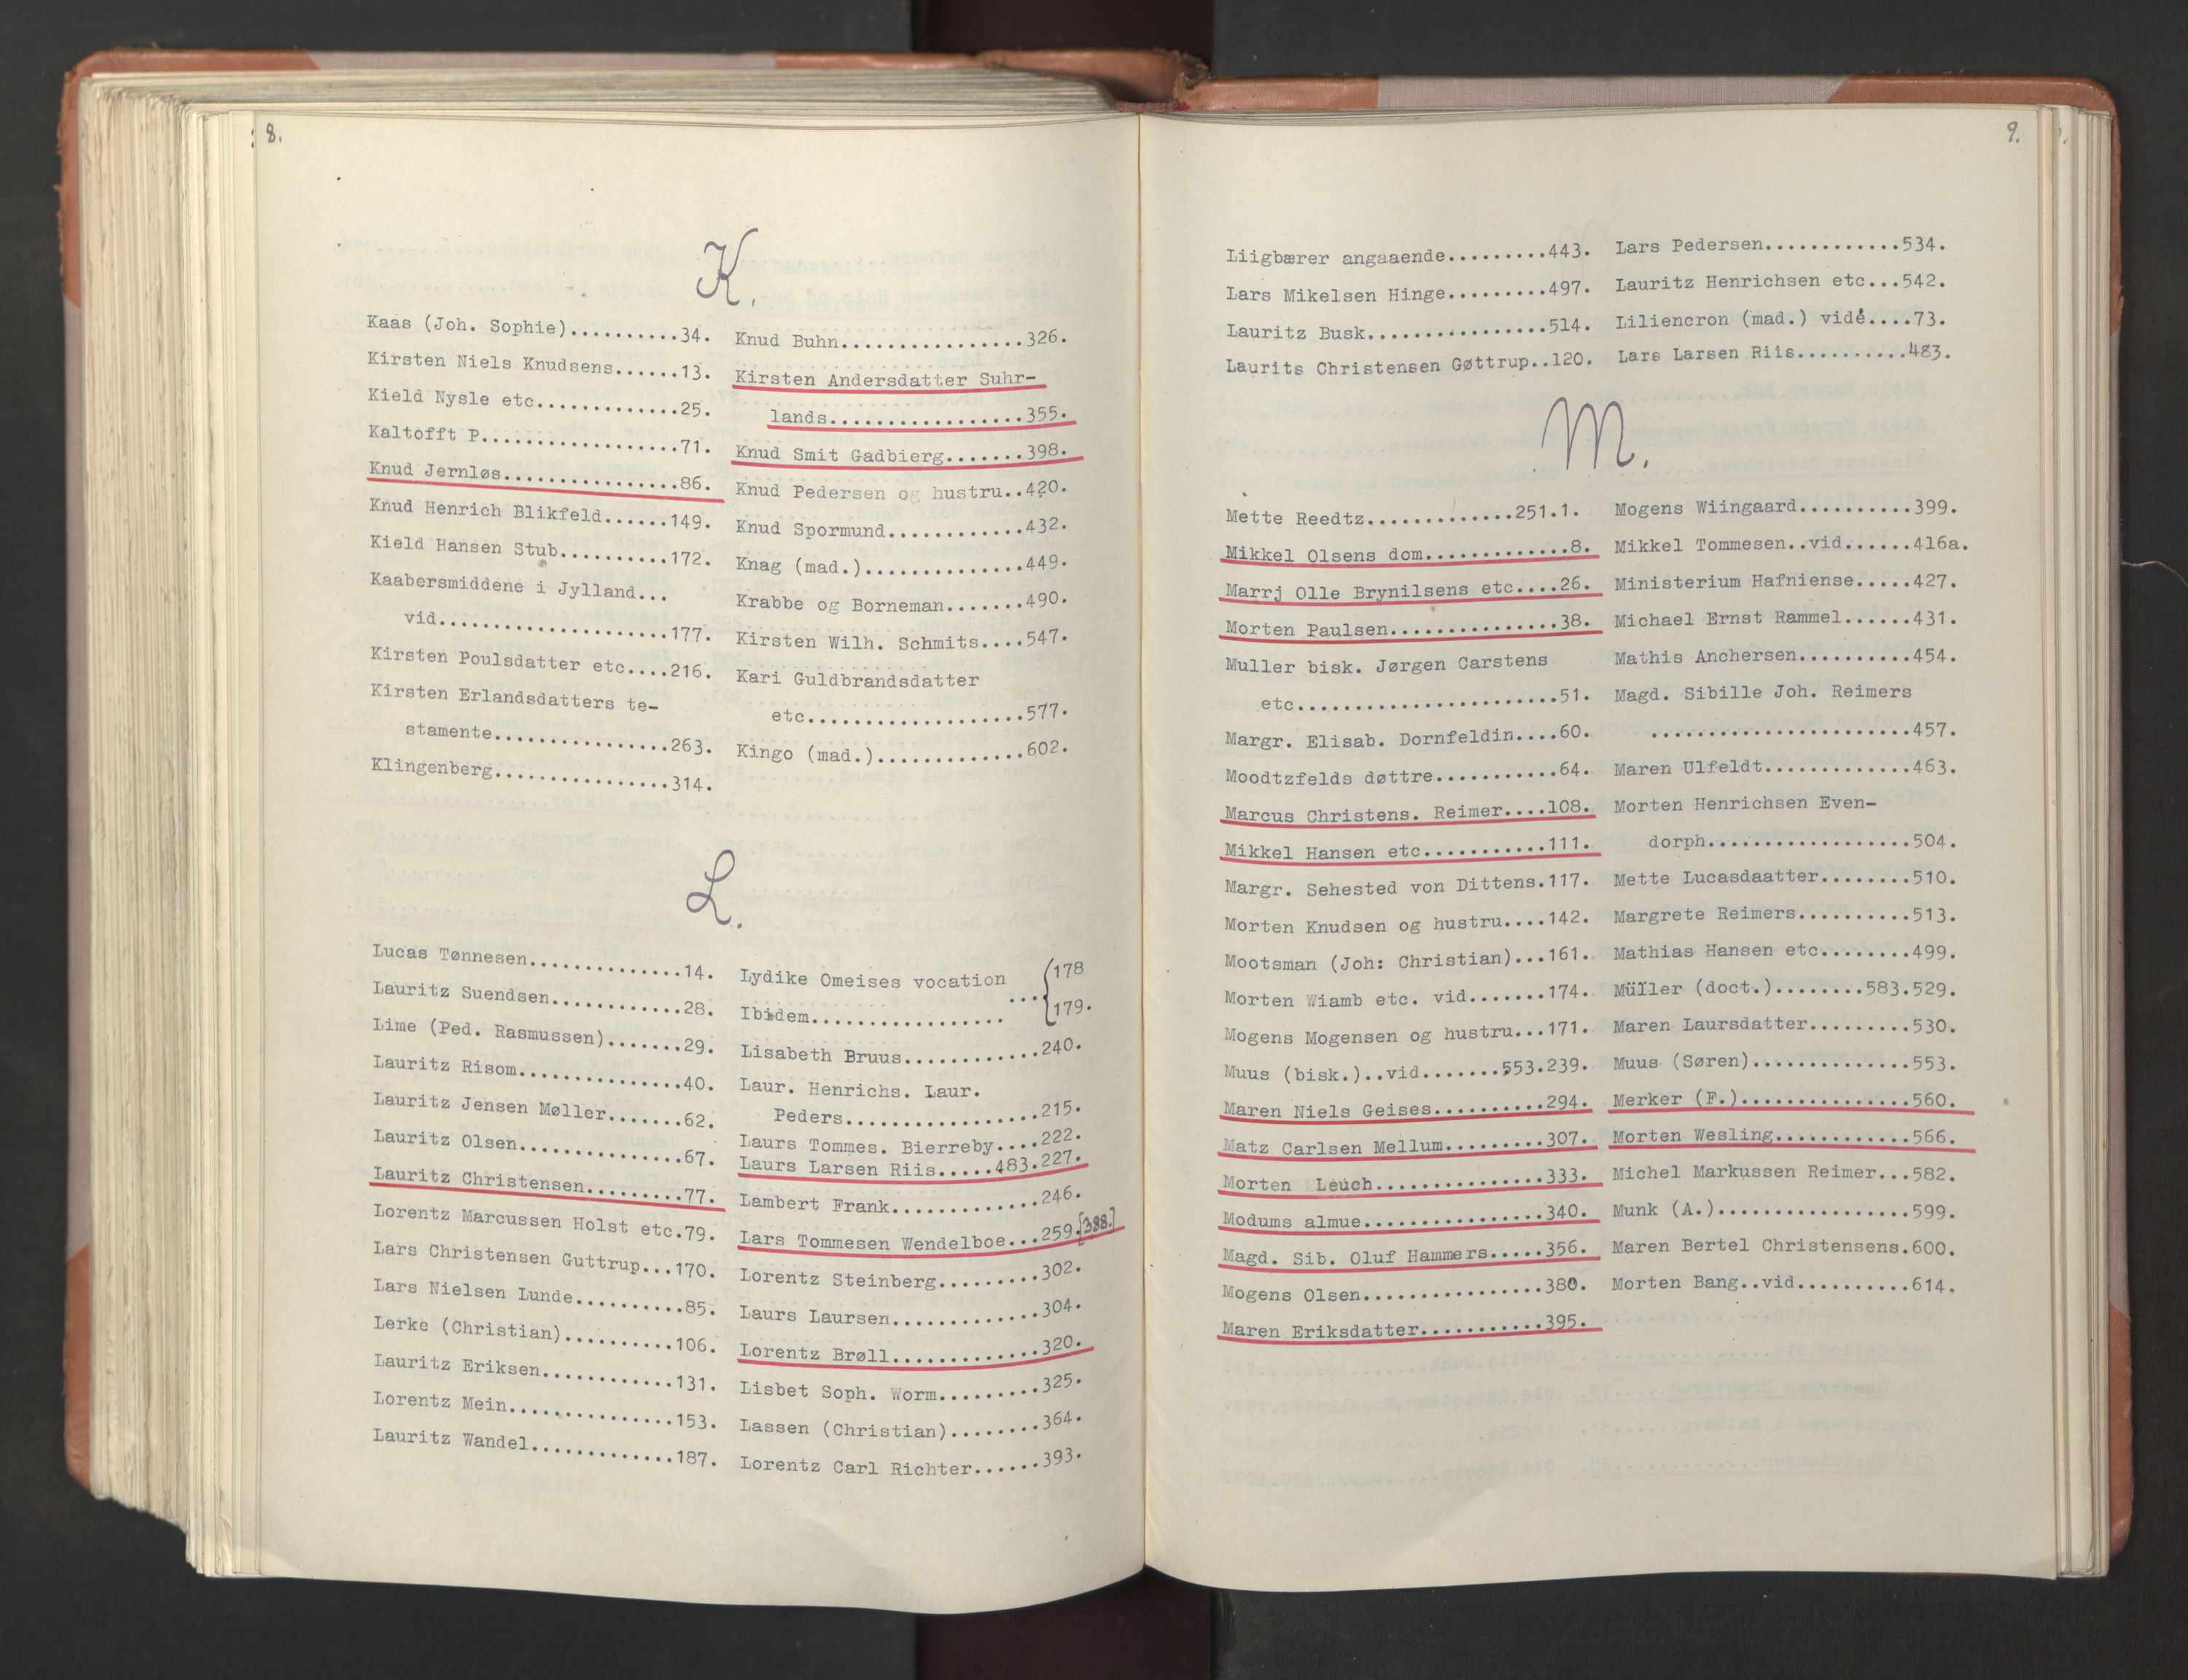 8.
K.
Kaas (Joh. Sophie)..........34.
Kirsten Niels Knudsens......13.
Kield Nysle etc.............25.
Kaltofft P..................71.
Knud Jernløs................86.
Knud Henrich Blikfeld......149.
Kield Hansen Stub..........172.
Kaabersmiddene i Jylland...
vid.....................177.
Kirsten Poulsdatter etc....216.
Kirsten Erlandsdatters te-
stamente................263.
Klingenberg................314.
Knud Buhn.................326.
Kirsten Andersdatter Suhr-
lands..................355.
Knud Smit Gadbierg.......398.
Knud Pedersen og hustru..420.
Knud Spormund............432.
Knag (mad.)...............449.
Krabbe og Borneman.......490.
Kirsten Wilh. Schmits....547.
Kari Guldbrandsdatter
etc....................577.
Kingo (mad.)..............602.
L.
Lucas Tønnesen..............14.
Lauritz Suendsen............28.
Lime (Ped. Rasmussen).......29.
Lauritz Risom...............40.
Lauritz Jensen Møller.......62.
Lauritz Olsen...............67.
Lauritz Christensen.........77.
Lorentz Marcussen Holst etc.79.
Lars Christensen Guttrup...170.
Lars Nielsen Lunde..........85.
Lerke (Christian)..........106.
Lauritz Eriksen............131.
Lorentz Mein...............153.
Lauritz Wandel.............187.
Lydike Omeises vocation ...{178
Ibidem.................. 179.
Lisabeth Bruus............240.
Laur. Henrichs. Laur.
Peders..................215.
Laurs Tommes. Bierreby....222.
Laurs Larsen Riis.....483.227.
Lambert Frank.............246.
Lars Tommesen Wendelboe...259.[388.]
Lorentz Steinberg.........302.
Laurs Laursen.............304.
Lorentz Brøll.............320.
Lisbet Soph. Worm.........325.
Lassen (Christian)........364.
Lorentz Carl Richter......393.
9.
Liigbærer angaaende.........443.
Lars Mikelsen Hinge.........497.
Lauritz Busk................514.
Laurits Christensen Gøttrup..120.
Lars Pedersen............534.
Lauritz Henrichsen etc...542.
Liliencron (mad.) vide....73.
Lars Larsen Riis..........483.
M.
Mette Reedtz.............251.1.
Mikkel Olsens dom.............8.
Marrj Olle Brynilsens etc....26.
Morten Paulsen...............38.
Muller bisk. Jørgen Carstens
etc........................51.
Margr. Elisab. Dornfeldin....60.
Moodtzfelds døttre...........64.
Marcus Christens. Reimer....108.
Mikkel Hansen etc...........111.
Margr. Sehested von Dittens.117.
Morten Knudsen og hustru....142.
Mootsman (Joh: Christian)...161.
Morten Wiamb etc. vid.......174.
Mogens Mogensen og hustru...171.
Muus (bisk.)..vid.......553.239.
Maren Niels Geises..........294.
Matz Carlsen Mellum.........307.
Morten Leuch...............333.
Modums almue................340.
Magd. Sib. Oluf Hammers.....356.
Mogens Olsen................380.
Maren Eriksdatter...........395.
Mogens Wiingaard..........399.
Mikkel Tommesen..vid......416a.
Ministerium Hafniense.....427.
Michael Ernst Rammel......431.
Mathis Anchersen..........454.
Magd. Sibille Joh. Reimers
........................457.
Maren Ulfeldt.............463.
Morten Henrichsen Even-
dorph...................504.
Mette Lucasdaatter........510.
Margrete Reimers..........513.
Mathias Hansen etc........499.
Müller (doct.)........583.529.
Maren Laursdatter.........530.
Muus (Søren)..............553.
Merker (F.)...............560.
Morten Wesling............566.
Michel Markussen Reimer...582.
Munk (A.).................599.
Maren Bertel Christensens.600.
Morten Bang..vid..........614.